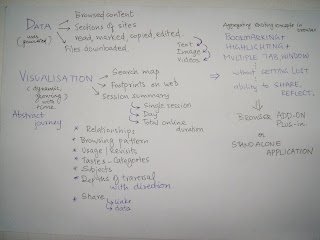 DATA
(web premises)
Browsed content
Sections of sites
read, marked, copied, edited
Files downloaded
Text
Image
Videos
VISUALISATION
(dynamic,
growing
with
time)
Search map
Footprints on web
Session summary
Single session
Day
Total online
duration
Abstract
journey
* Relationships
* Browsing pattern
* Usage/Revisits
* Tastes - Categories
* Subjects
* Depths of traversal
with direction
* Share
Links
data
Aggregating existing concepts in
browser
BOOKMARKING +
HIGHLIGHTING +
MULTIPLE TAB WINDOW
⇒ what GETTING LOST
ability to SHARE,
REFLECT.
BROWSER ADD-ON
PLUG-IN
or
STANDALONE
APPLICATION